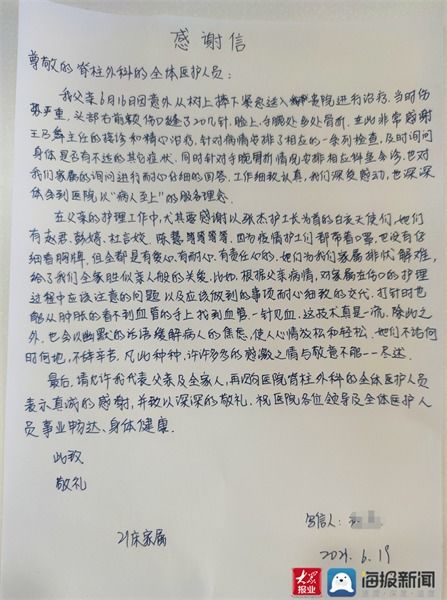 感谢信
尊敬的脊柱外科的全体医护人员：
我父亲6月16日因意外从树上摔下紧急送入贵院进行治疗，当时伤
势严重，头部右前额伤口缝了20几针，脸上，手腕处多处骨折，在此非常感谢
主任的接诊和精心治疗，针对病情安排了相应的一系列检查，及时询问
身体是否有不适的其它症状，同时针对手腕骨折情况安排相应科室会诊，也对
我们家属的询问进行耐心仔细的回答，工作细致认真，我们深受感动，也深深
体会到医院以“病人至上”的服务理念。
在父亲的护理工作中，尤其要感谢以张杰护士长为首的白衣天使们，她们
有赵君、彭婧、杜言姣、陈慧等等等等，因为疫情护士们都带着口罩，也没有仔
细看胸牌，但全都是有爱心、有耐心、有责任心的，她们为我们家属排忧解难，
给了我们全家胜似亲人般的关爱。比如，根据父亲病情，对家属在伤口的护理
过程中应该注意的问题以及应该做到的事项耐心细致的交代，打针时也
能从肿胀的看不到血管的手上找到血管，一针见血，这技术真是一流，除此之
外，也会以幽默的话语缓解病人的焦虑，使人心情愉快和轻松，她们不论何
时何地，不辞辛苦，凡此种种，许许多多的感激之情与敬意不能一一尽述。
最后，请允许我代表父亲及全家人，再次向医院脊柱外科的全体医护人员
表示真诚的感谢，并致以深深的敬礼，祝医院各位领导及全体医护人
员事业畅达、身体健康。
此致
敬礼
21床家属
写信人：
2021.6.19
大众报业 海报新闻